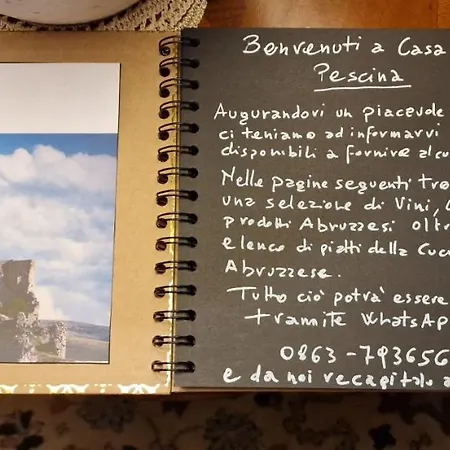 Benvenuti a Casa
Pescina
Augurandovi un piacevole
ci teniamo ad informarvi
disponibili a fornire alcu
Nelle pagine seguenti tro
una selezione di Vini,
prodotti Abruzzesi oltr
elenco di piatti della Cuc
Abruzzese.
Tutto ciò potrà essere
tramite WhatsAp
0863-793656
e da noi recapitato a